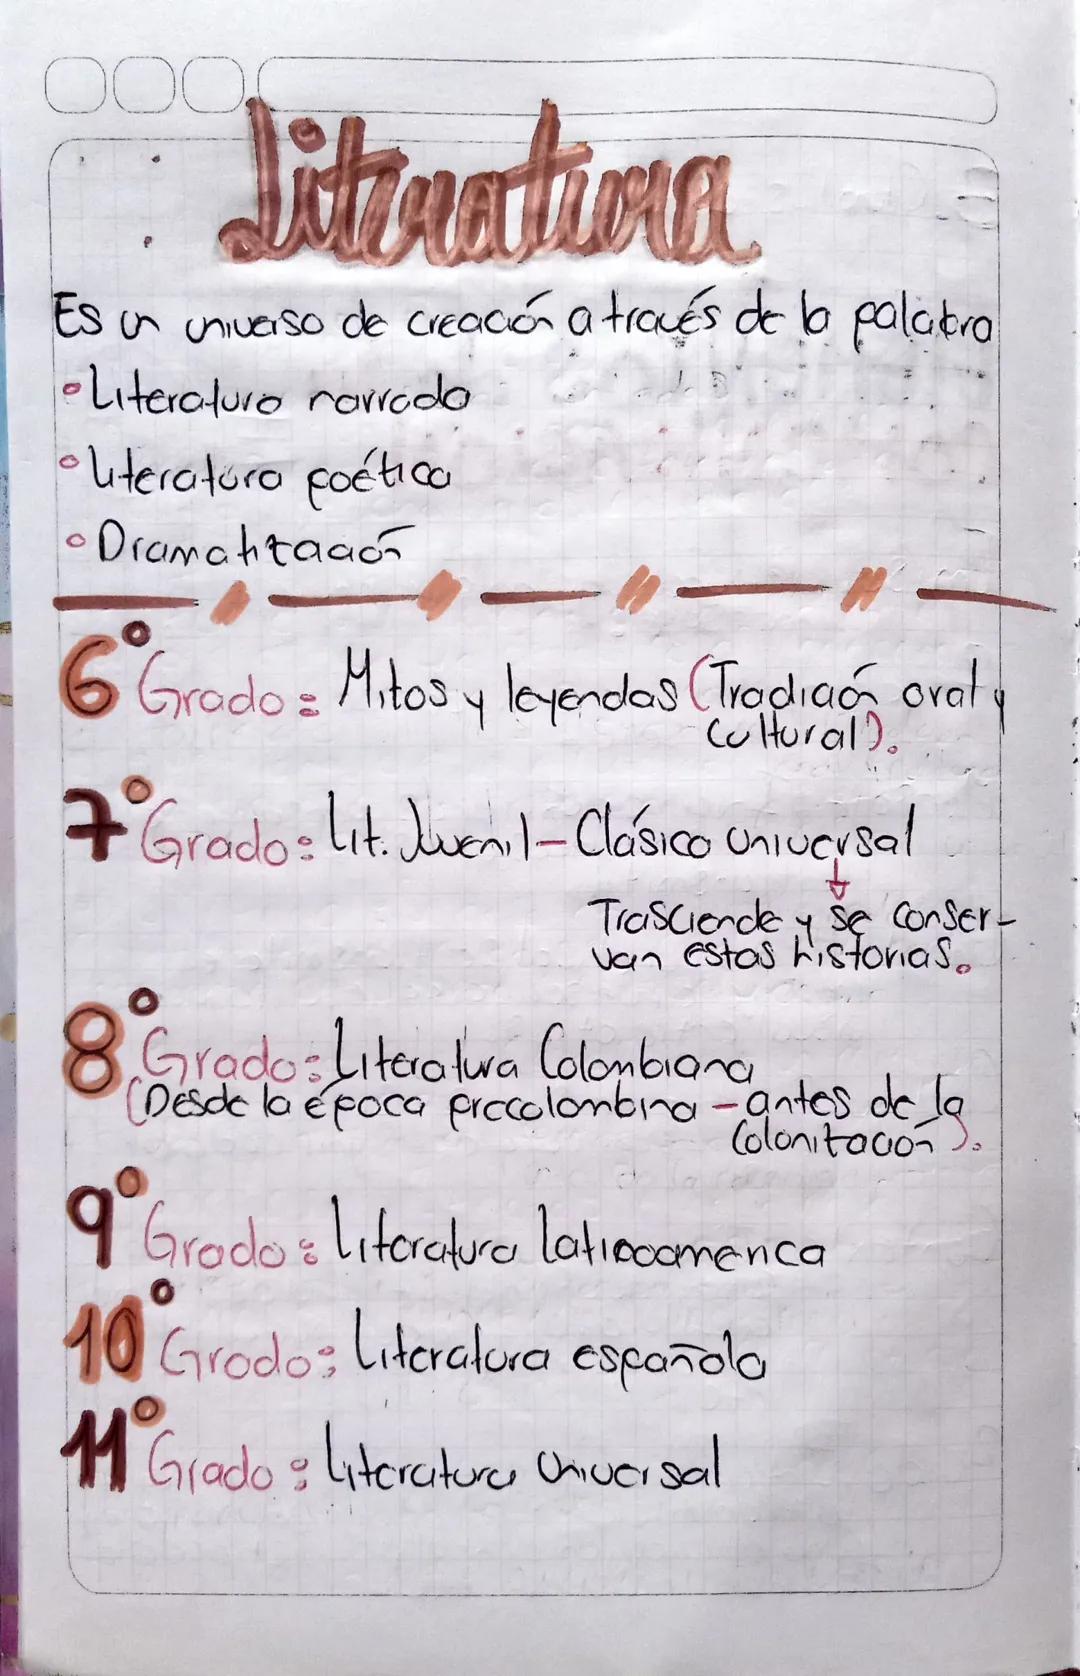 Literatura
Es un universo de creación a través de la palabra
• Literatura narrada
• Literatura poética
• Dramatización
6° Grado: Mitos y leyendas (Tradición oral y
cultural).
7° Grado: Lit. Juvenil - Clásico universal
↓
Trasciende y se conser-
van estas historias.
8° Grado: Literatura Colombiana
(Desde la época precolombina - antes de la
Colonización).
9° Grado: Literatura latinoamerica
10° Grado: Literatura española
11° Grado: Literatura Universal